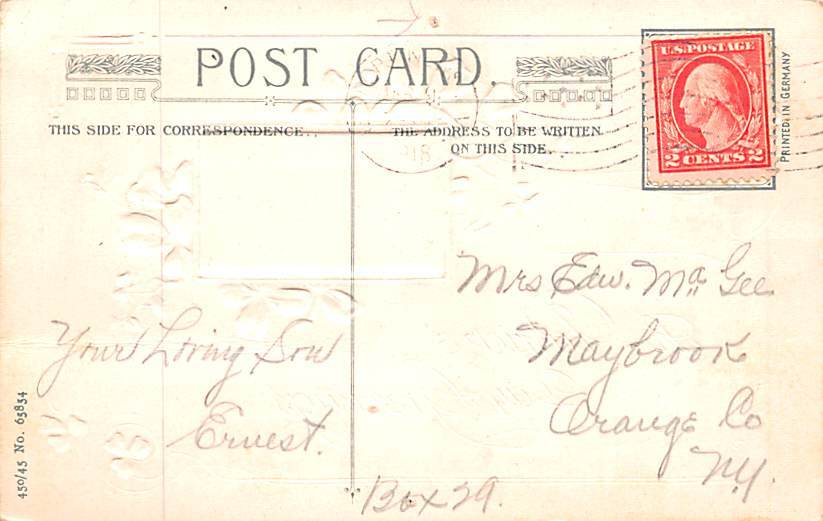 POST CARD.
THIS SIDE FOR CORRESPONDENCE..
THE ADDRESS TO BE WRITTEN
ON THIS SIDE.
U.S. POSTAGE
2 CENTS 2
PRINTED IN GERMANY
Your Loving Son
Ernest.
Mrs Edw. Ma Gee
Maybrook
Orange Co
N.Y.
Box 29.
450/45 No. 63834